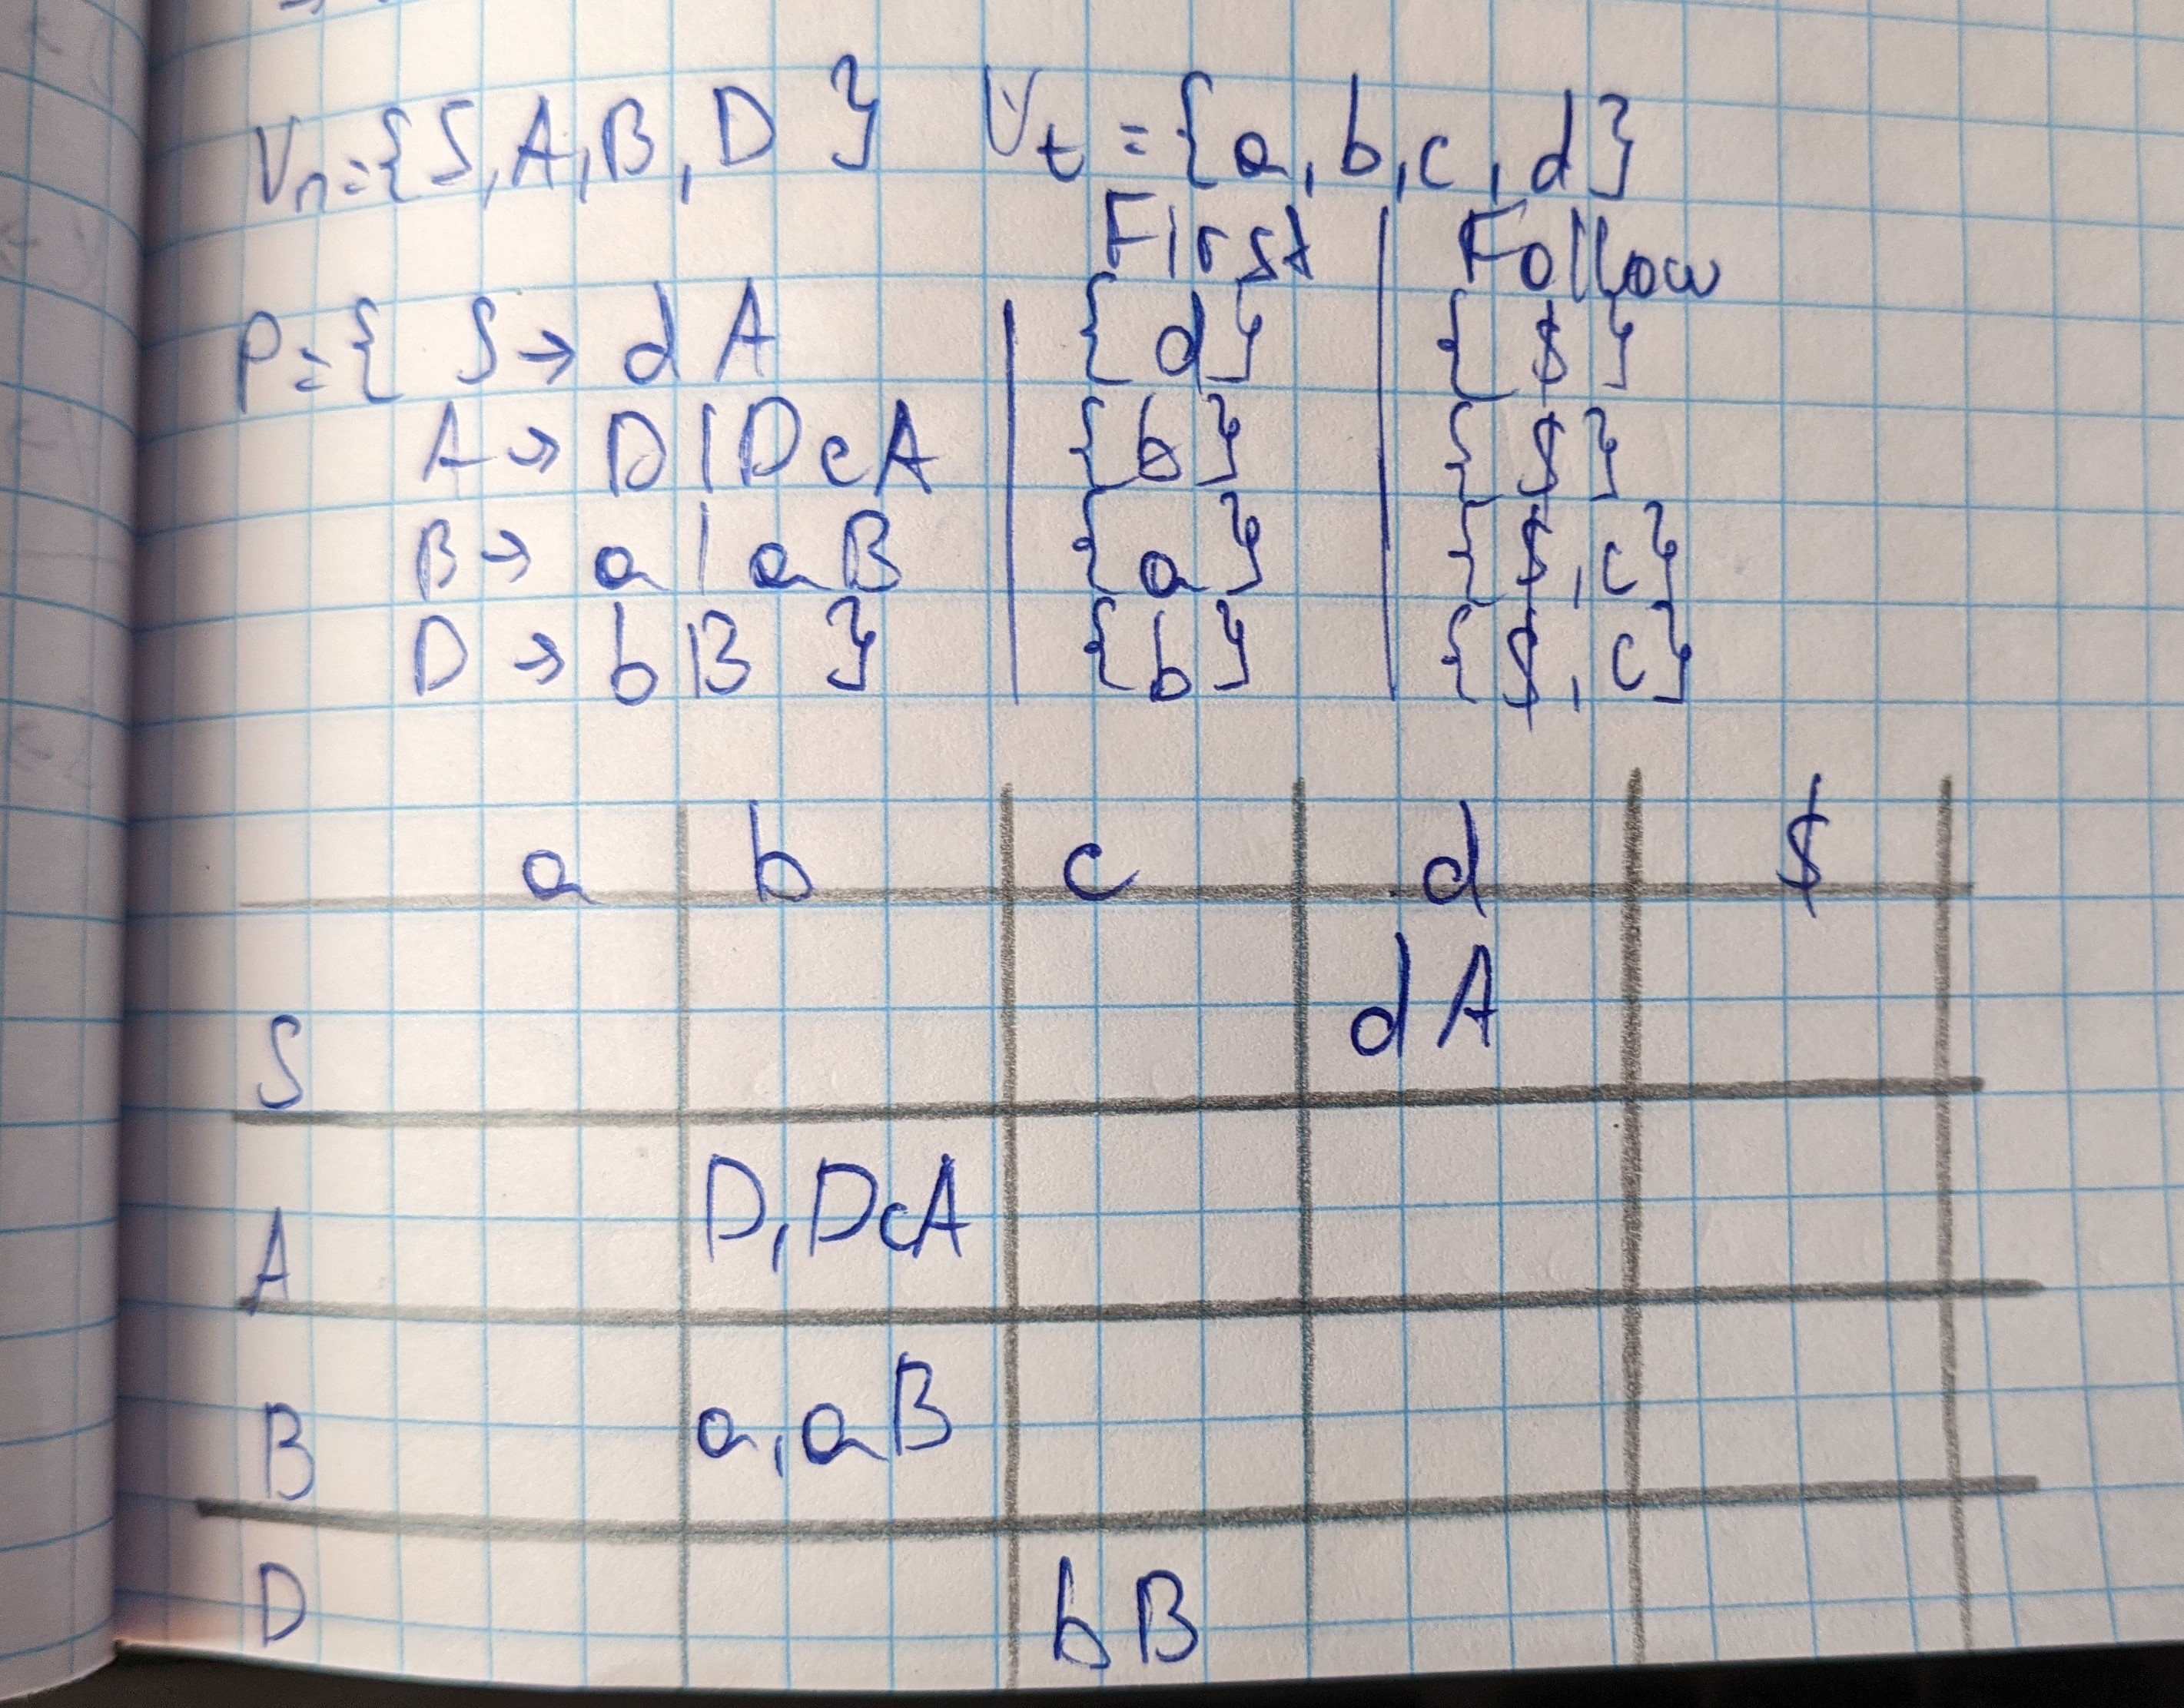 Vn={S,A,B,D } Vt={a,b,c,d}
First | Follow
P={ S→ dA | {d} | {$}
A→ D|DcA | {b} | {$}
B→ a|aB | {a} | {$,c}
D→ bB } | {b} | {$,c}
a b c d $
S dA
A D,DcA
B a,aB
D bB